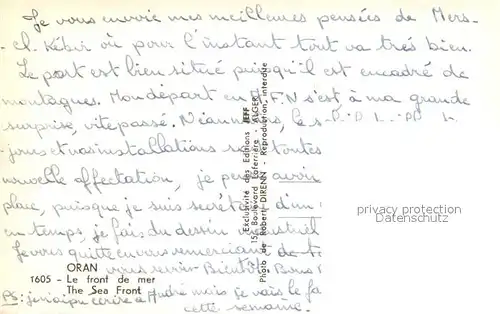 Je vous envoie mes meilleures pensées de Mers-
el-Kébir où pour l'instant tout va très bien.
Le port est bien situé puisqu'il est encadré de
montagnes. Mon départ en A.F.N s'est à ma grande
surprise, vite passé. Néanmoins, les
jours et vos installations sont toutes
nouvelle affectation, je pense avoir
place, puisque je suis secrétaire d'un
en temps, je fais du dessin industriel
Je vous quitte en vous remerciant de
vous revoir Bientôt. Bons
PS: je n'ai pu écrire à André mais je vais le fa
cette semaine.
ORAN
1605 - Le front de mer
The Sea Front
Exclusivité des Editions JEFF
15, Boulevard Laferrière - ALGER
Photo de Robert DIRENN - Reproduction interdite
privacy protection
Datenschutz